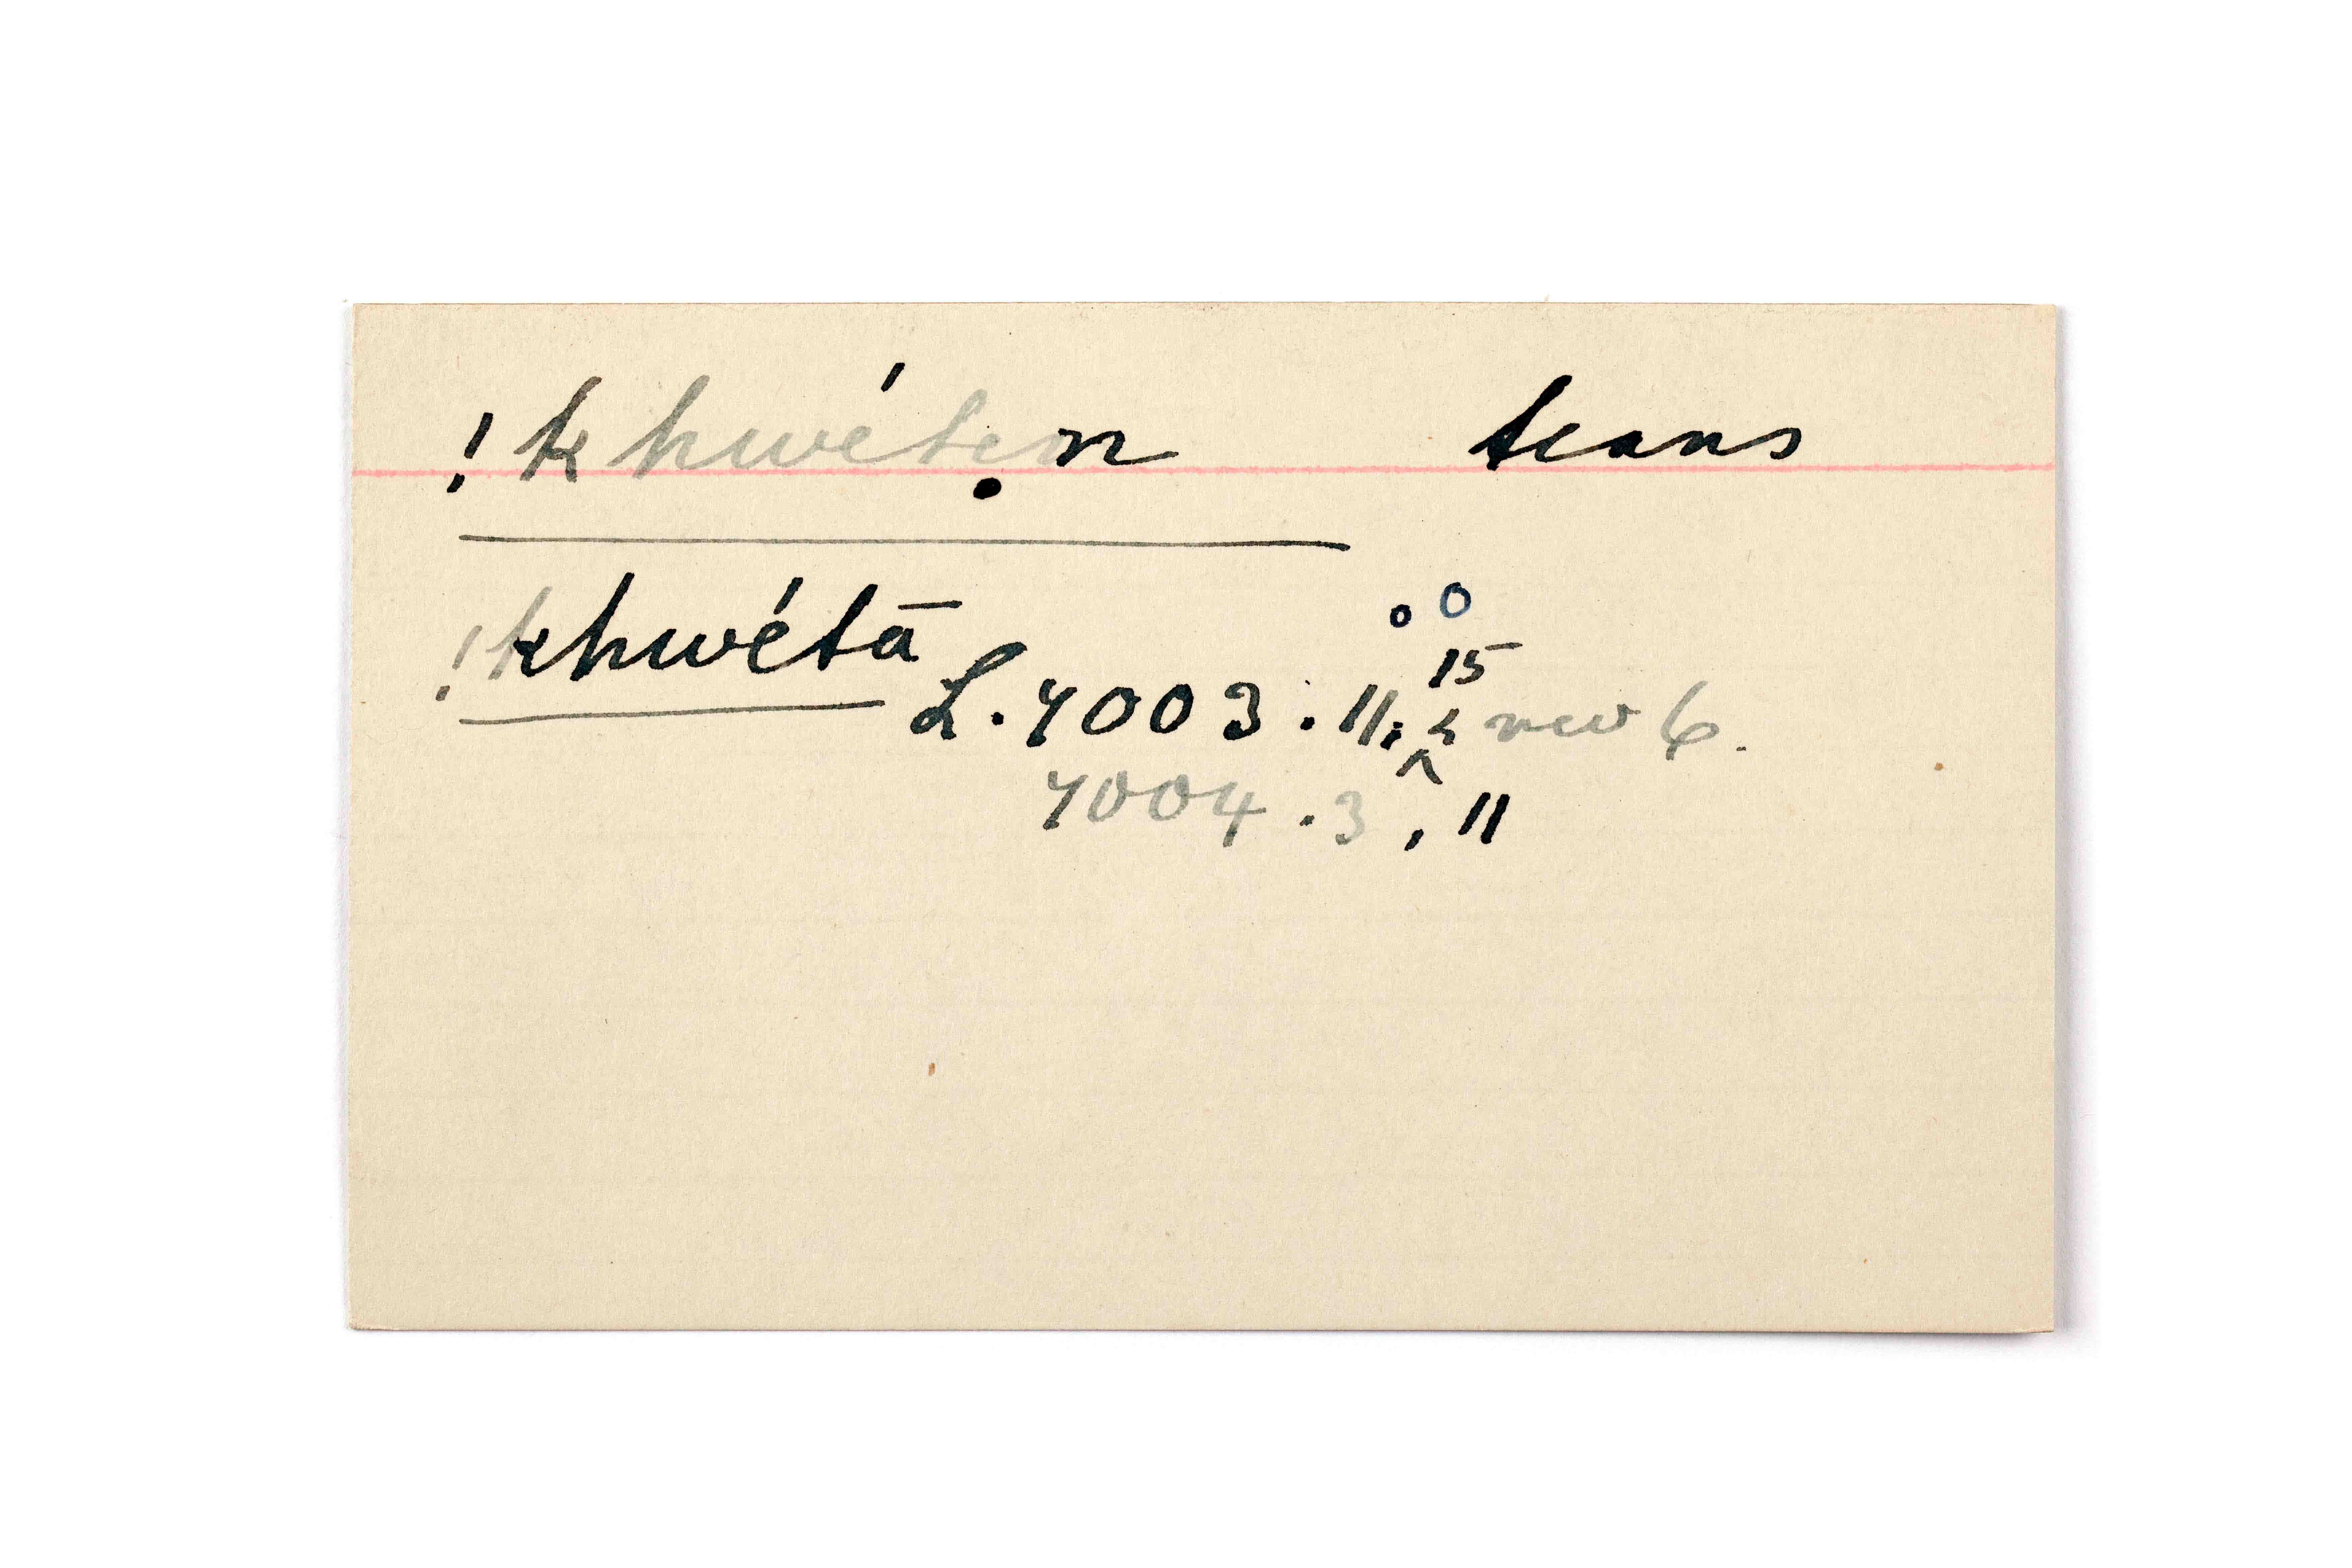 !khwétẹn tears
!khwétā
o o
15
L. 4003. 11, & rev 6.
4004. 3, 11